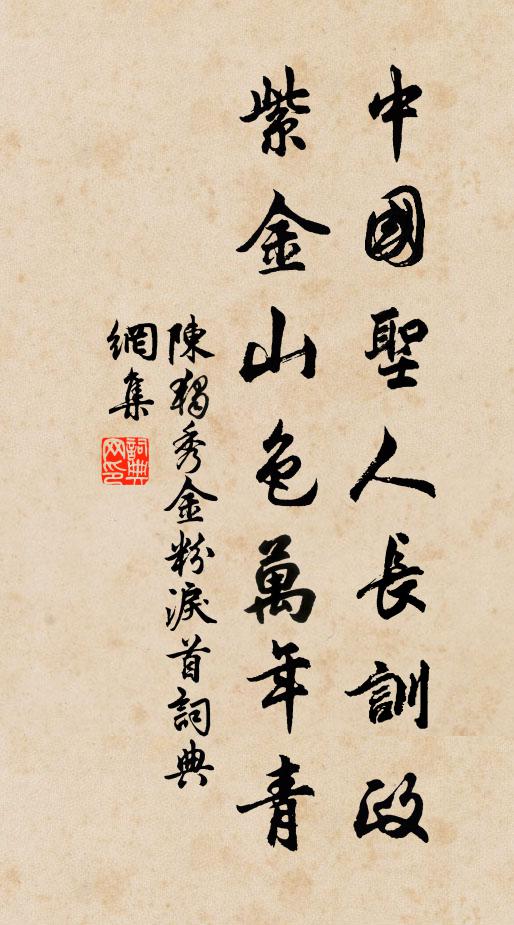 中國聖人長訓政
紫金山色萬年青
陳獨秀金粉淚首詞典
網集
詞典
网印